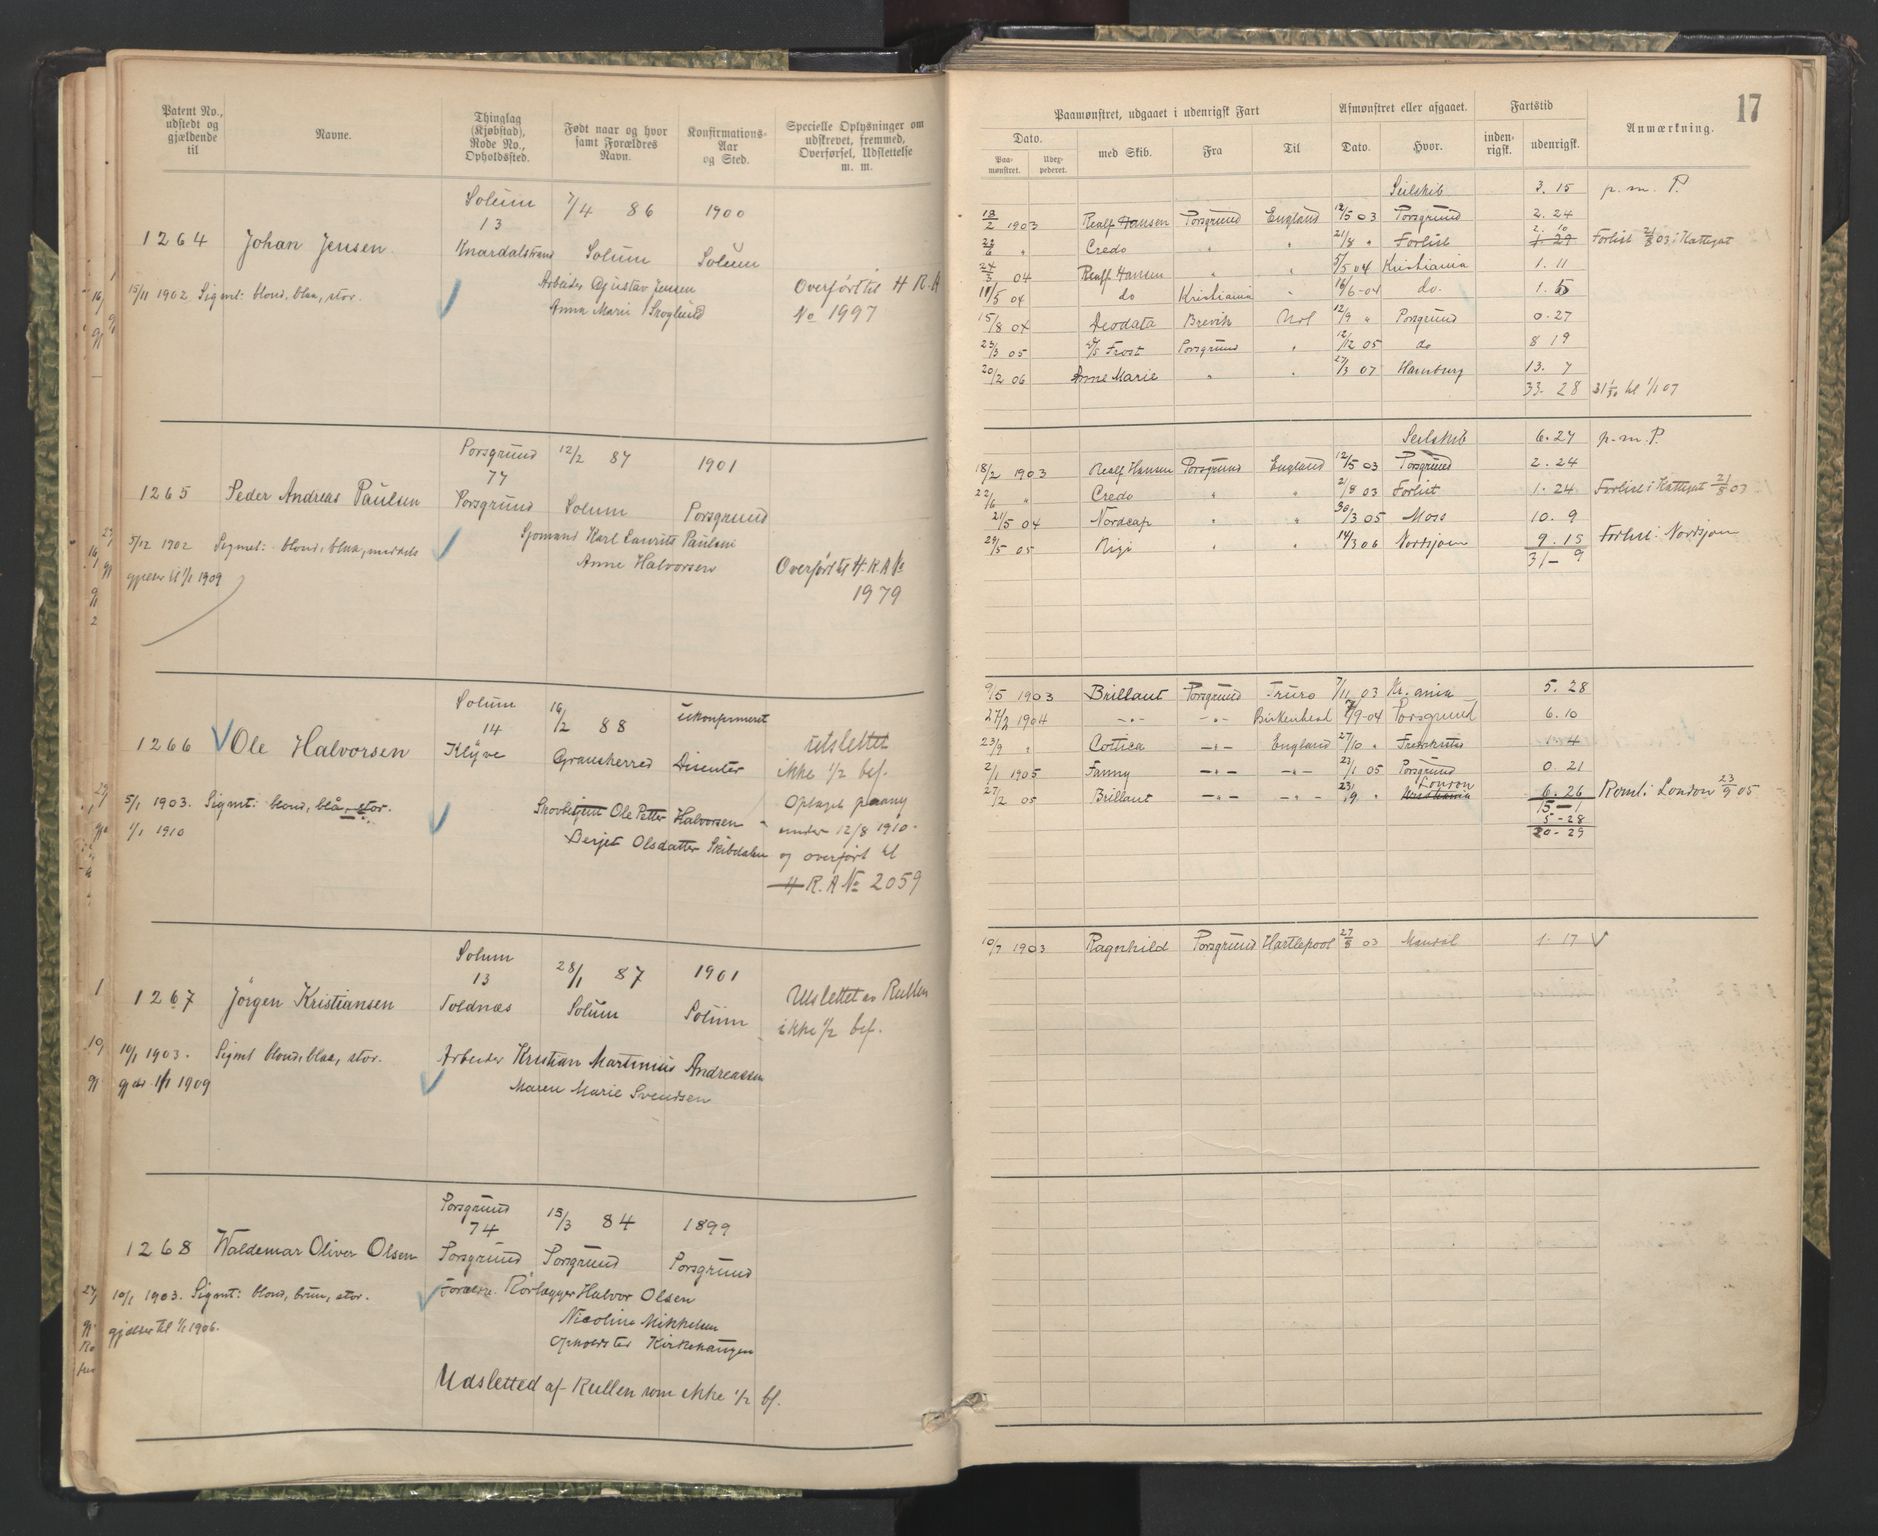 Patent No., udstedt og gjældende til
Navne.
Thinglag (Kjøbstad), Rode No., Opholdssted.
Født naar og hvor samt Forældres Navn.
Konfirmations-Aar og Sted.
Specielle Oplysninger om udskrevet, fremmed, Overførsel, Udslettelse m. m.
1264 Johan Jensen. Solum 13 Knardalstrand 7/4 86 Solum 1900 Solum
15/11 1902 Sigmt: blond, blaa, stor.
Arbeider Gustav Jensen
Anna Marie Skoglund
Overført til H R. A
No 1997
1265 Peder Andreas Paulsen Porsgrund 77 Porsgrund 12/2 87 Solum 1901 Porsgrund
5/12 1902 Sigmt: blond, blaa, middels
gjælder til 1/1 1909
Sjømand Karl Lauritz Paulsen
Anne Halvorsen
Overført til H. R. A No
1979
1266 Ole Halvorsen Solum 14 Klyve 16/2 88 Gransherred ukonfirmeret Disenter
5/1 1903. Sigmt: blond, blå, stor.
1/1 1910
Ole Petter Halvorsen
Berjet Olsdatter Skibdalen
utslettet
ikke 1/2 bef.
Optaget paany
under 12/8 1910.
og overført til
H R. A No 2059
1267 Jörgen Kristiansen Solum 13 Toldnæs 28/1 87 Solum 1901 Solum
10/1 1903. Sigmt blond, blaa, stor.
gjldr 1/1 1909
Arbeider Kristian Martinius Andreassen
Maren Marie Svendsen
Utslettet av Rullen
ikke 1/2 bef.
1268 Waldemar Oliver Olsen Porsgrund 74 Porsgrund 15/3 84 Porsgrund 1899 Porsgrund
10/1 1903. Sigmt: blond, brun, stor.
gjælder til 1/1 1906.
Forældre. Rörlægger Halvor Olsen
Nicoline Mikkelsen
Opholdster Kirkehaugen
Udsletted af Rullen som ikke 1/2 bf.
17
Paamønstret, udgaaet i udenrigsk Fart
Afmønstret eller afgaaet.
Fartstid
Anmærkning.
Dato.
Paa-mønstret.
Udex-pederet.
med Skib.
Fra
Til
Dato.
Hvor.
inden-rigsk.
udenrigsk.
Seilskib 3. 15 p. m. P.
18/2 1903 Realf Hansen Porsgrund England 12/5 03 Porsgrund 2. 24
22/6 " Credo " " 21/8 " Forlist 2. 10 1 29 Forlist 21/8 03 i Kattegat
24/3 04 Realf Hansen " " 5/5 04 Kristiania 1. 11
11/5 04 do Kristiania " 16/6-04 do. 1. 5
15/8 04 Deodata Brevik Hol 12/9 " Porsgrund 0. 27
23/3 05 D/S Frost Porsgrund " 12/12 05 do 8 19
20/2 06 Anne Marie " " 27/3 07 Hamburg 13. 7
33. 28 31 1/30 til 1/1 07
Seilskib 6. 27 p. m. P.
18/2 1903 Realf Hansen Porsgrund England 12/5 03 Porsgrund 2. 24
22/6 " Credo " " 21/8 03 Forlist 1. 24 Forlist i Kattegat 21/8 03
21/5 04 Nordcap " " 30/3 05 Moss 10. 9
29/5 05 Rigi " " 14/3 06 Nordsjøen 9. 15 Forlist i Nordsjøen
31 - 9
9/5 1903 Brillant Porsgrund Truro 7/11 03 Kr. ania 5. 28
27/2 1904 -"- -"- Birkenhead 9-04 Porsgrund 6. 10
23/9 " Cottica -"- England 27/10 " Fredrikstad 1 4
2/1 1905 Fanny -"- -"- 23/1 05 Porsgrund 0. 21
27/2 05 Brillant -"- -"- 23/9 " London Kristiania 6. 26 Romt i London 23/9 05
15 - 1
5 - 28
20 - 29
10/7 1903 Ragnhild Porsgrund Hartlepool 27/8 03 Mandal 1. 17